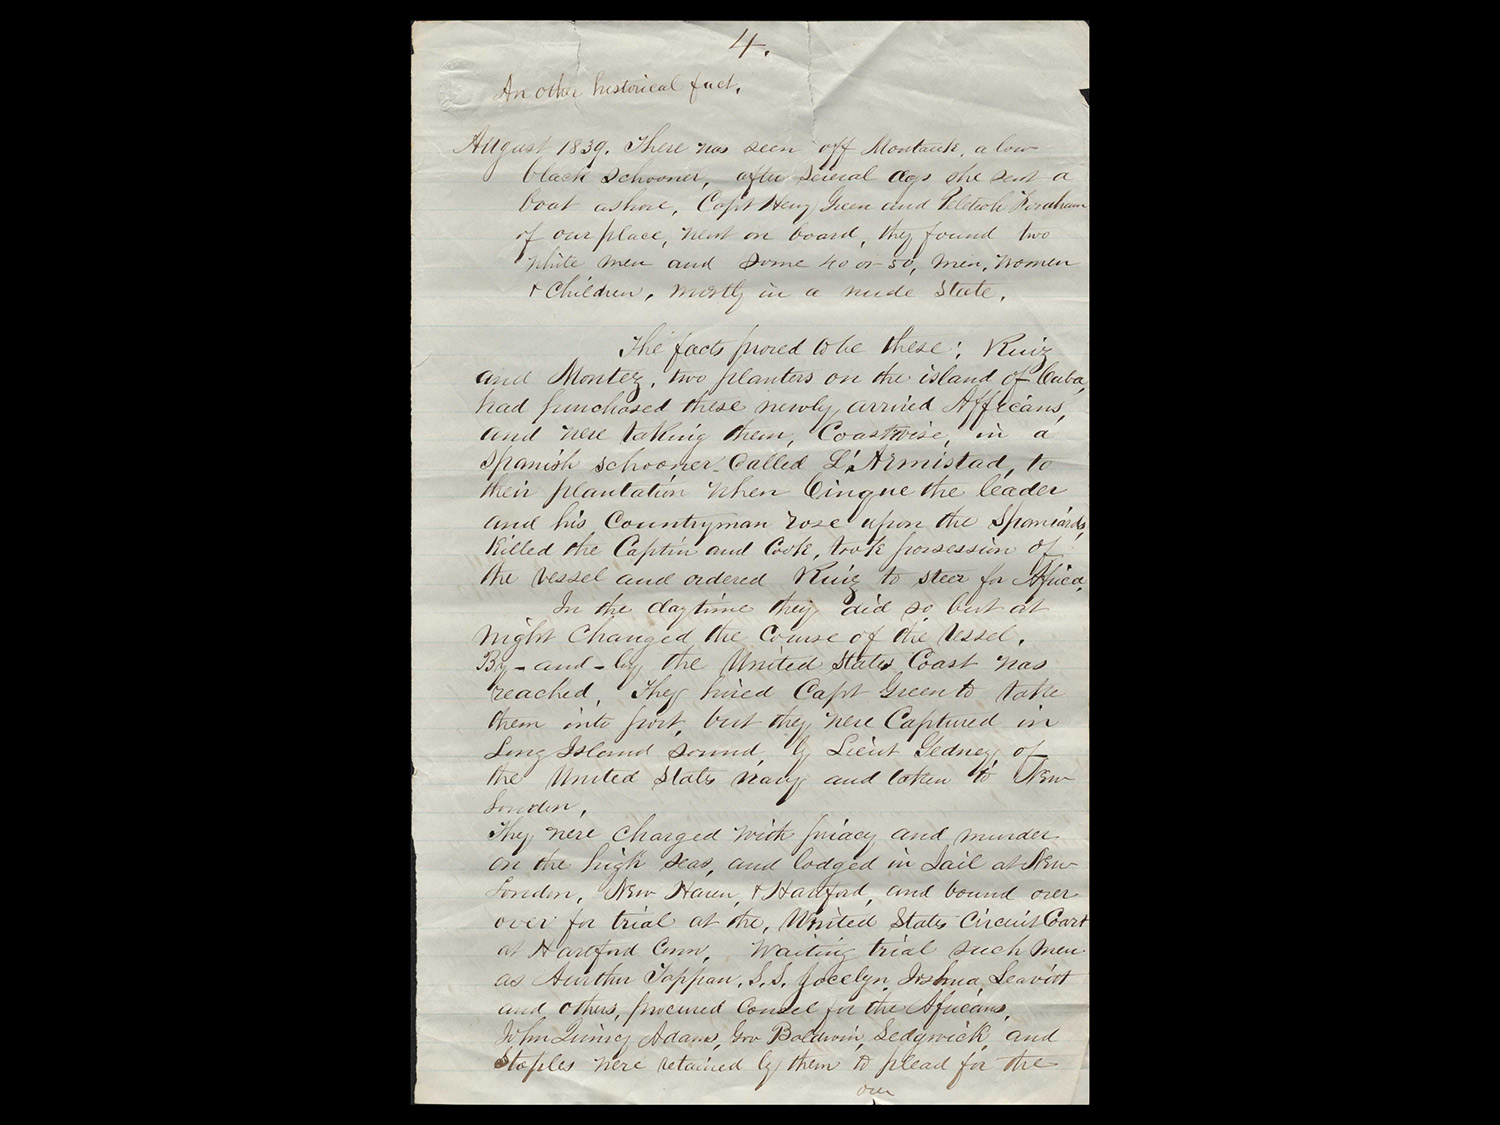 4.
An other historical fact.
August 1839. There was seen off Montauk, a low
black schooner, after several days she sent a
boat ashore, Capt Henry Green and Peletiah Fordham
of our place, went on board, they found two
white men and some 40 or 50, men, women
& Children, mostly in a nude State.
The facts proved to be these; Ruiz
and Montez, two planters on the island of Cuba,
had purchased these newly arrived Affricans,
and were taking them, Coastwise, in a
Spanish schooner called L'Armistad, to
their plantation when Cinque the leader
and his Countryman rose upon the Spaniards,
Killed the Captin and Cook, took possession of
the vessel and ordered Ruiz to steer for Africa,
In the daytime they did so but at
night changed the course of the vessel.
By-and-by the United States Coast was
reached. They hired Capt Green to take
them into port, but they were Captured in
Long Island sound, by Lieut Gedney, of
the United States navy and taken to New
London,
They were charged with piracy and murder
on the high seas, and lodged in Jail at New
London, New Haven, & Hartford, and bound over
over for trial at the, United States Circuit Court
at Hartford Conn, Waiting trial such men
as Aurthur Tappan, S.S. Jocelyn, Joshua, Leavitt
and others, procured Consel for the Africans,
John Quincy Adams, Gov Baldwin, Sedgwick, and
Staples were retained by them to plead for the
over